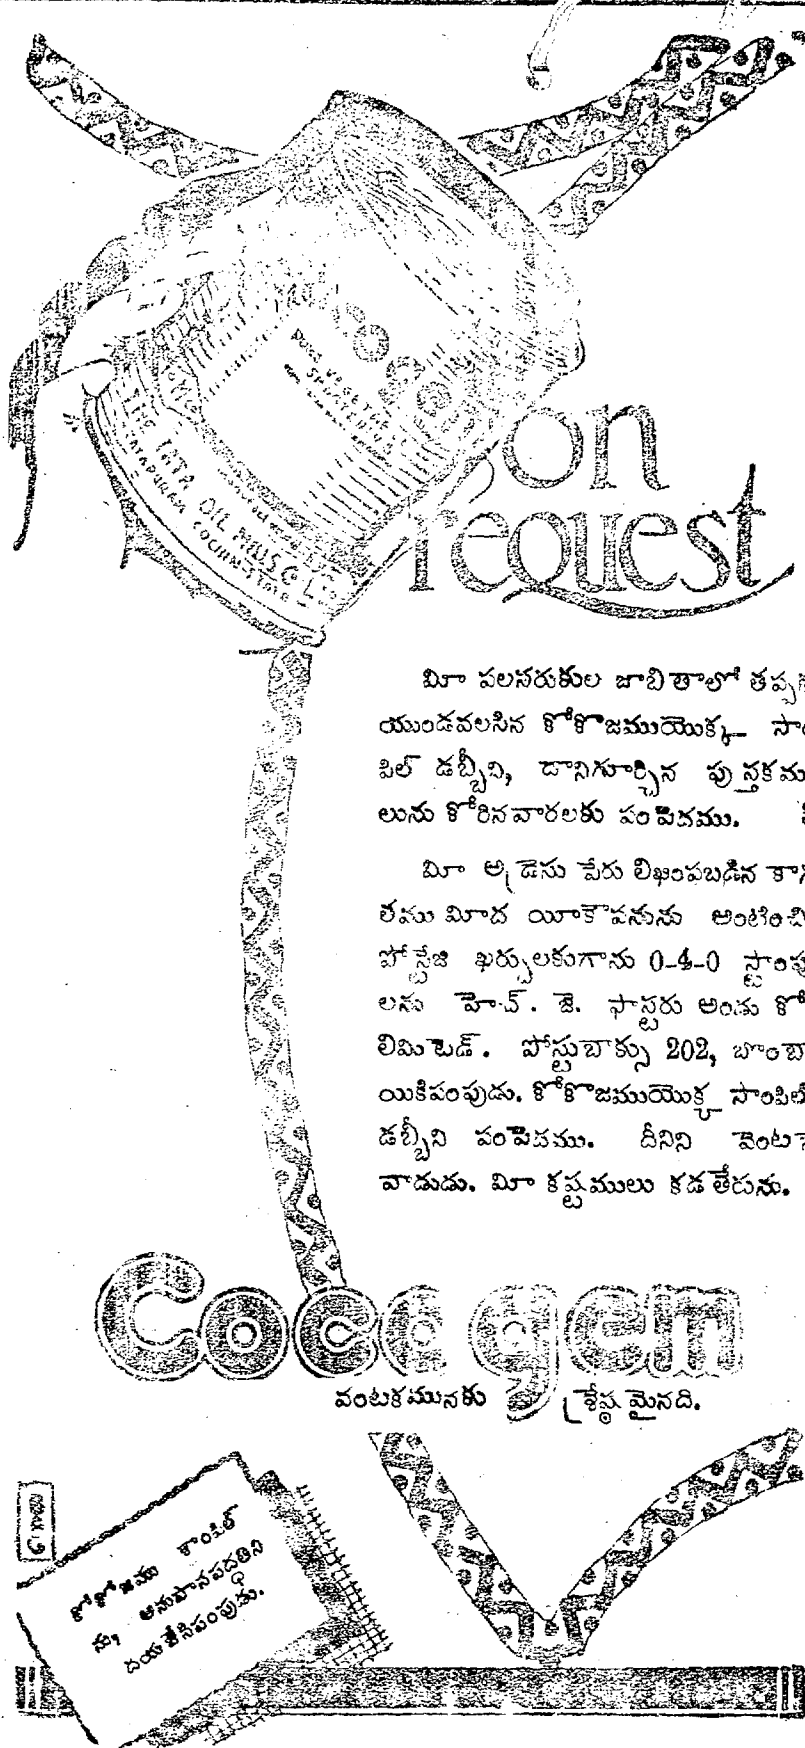 Cocogem
PURE VEGETABLE
THE TATA OIL MILLS Co. Ld.
TATAPURAM COCHIN STATE
on
request
మీ పలసరుకుల జాబితాలో తప్పక
యుండవలసిన కోకొజముయొక్క సాం
పిల్ డబ్బీని, దానిగూర్చిన పుస్తకము
లును కోరినవారలకు పంపెదము.
మీ అడ్రెసు పేరు లిఖింపబడిన కాగి
తము మీద యీకౌపనును అంటించి
పోస్టేజి ఖర్చులకుగాను 0-4-0 స్టాంపు
లను హెచ్. జె. ఫాస్టరు అండు కో
లిమిటెడ్. పోస్టుబాక్సు 202, బొంబా
యికిపంపుడు. కోకొజముయొక్క సాంపిల్
డబ్బీని పంపెదము. దీనిని వెంటనే
వాడుడు. మీ కష్టములు కడతేరును.
Cocogem
వంటకమునకు శ్రేష్ఠమైనది.
కోకోజము సాంపిల్
ను, అనుపానపద్ధతిని
దయచేసిపంపుడు.